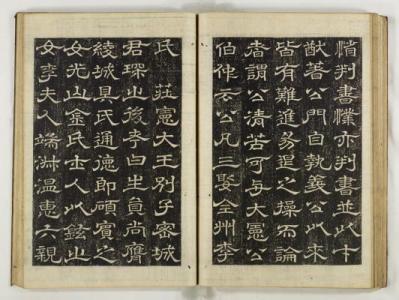 判書亦判書並以才
猷著公門自執義公以來
皆有難進易退之操而論
者謂公清苦可與大憲公
伯仲云公凡三娶全州李
氏 莊憲大王別子密城
君琛之後考曰生員尚膺
綾城具氏通德郎碩賓之
女光山金氏士人以鉉之
女李夫人端淑溫惠六親